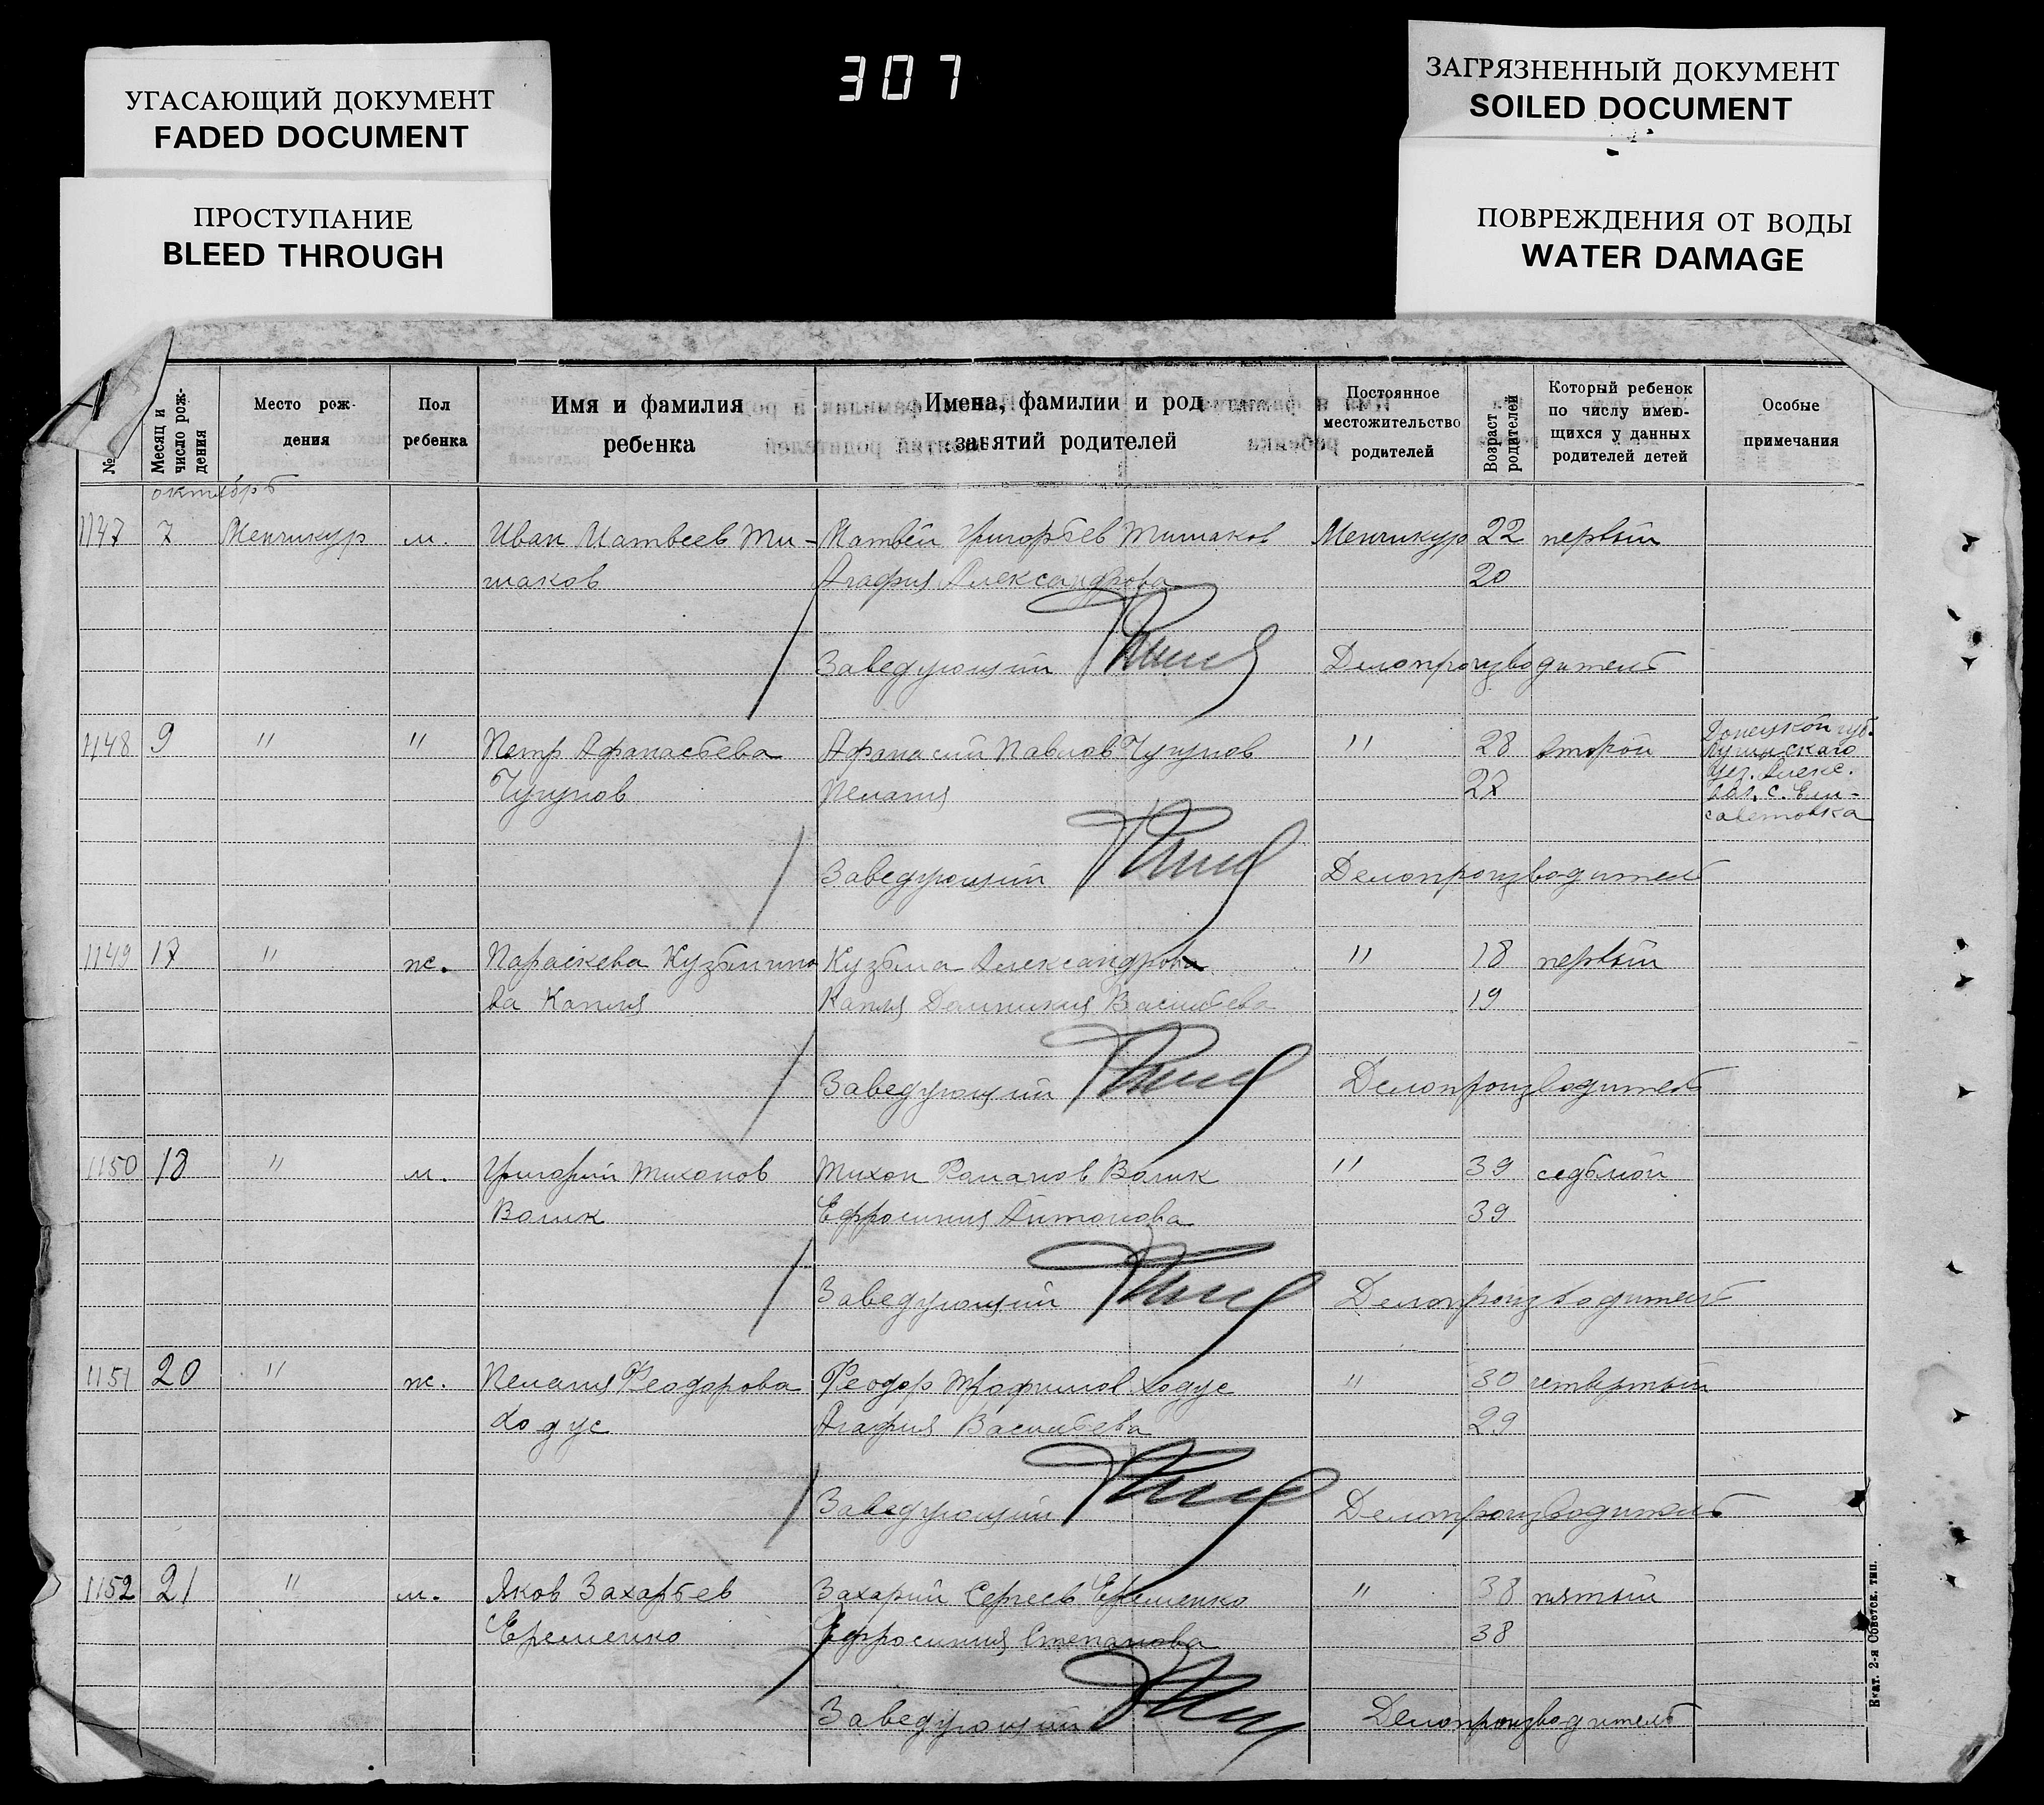 УГАСАЮЩИЙ ДОКУМЕНТ
FADED DOCUMENT
ПРОСТУПАНИЕ
BLEED THROUGH
307
ЗАГРЯЗНЕННЫЙ ДОКУМЕНТ
SOILED DOCUMENT
ПОВРЕЖДЕНИЯ ОТ ВОДЫ
WATER DAMAGE
№
Месяц и число рож-дения
Место рож-
дения
Пол
ребенка
Имя и фамилия
ребенка
Имена, фамилии и род
занятий родителей
Постоянное
местожительство
родителей
Возраст родителей
Который ребенок
по числу имею-
щихся у данных
родителей детей
Особые
примечания
октябрь
1147 7 Менчикур м. Иван Матвеев Ти- Матвей Григорьев Тишаков Менчикур 22 первый
шаков Агафия Александрова 20
Заведующий Делопроизводитель
1148 9 " " Петр Афанасьева Афанасий Павлов Чугунов " 28 второй
Чугунов Пелагия 27
Донецкой губ.
Луганскаго
уез. Алекс.
вол. с. Ели-
саветовка
Заведующий Делопроизводитель
1149 17 " ж. Параскева Кузьмино Кузьма Александрова " 18 первый
ва Капля Капля Домникия Васильева 19
Заведующий Делопроизводитель
1150 18 " м. Григорий Тихонов Тихон Романов Волик " 39 седьмой
Волик Ефросиния Антонова 39
Заведующий Делопроизводитель
1151 20 " ж. Пелагия Феодорова Феодор Трофимов Ходус " 30 четвертый
Ходус Агафия Васильева 29
Заведующий Делопроизводитель
1152 21 " м. Яков Захарьев Захарий Сергеев Еременко " 38 пятый
Еременко Ефросиния Степанова 38
Заведующий Делопроизводитель
Екат. 2-я Советск. тип.